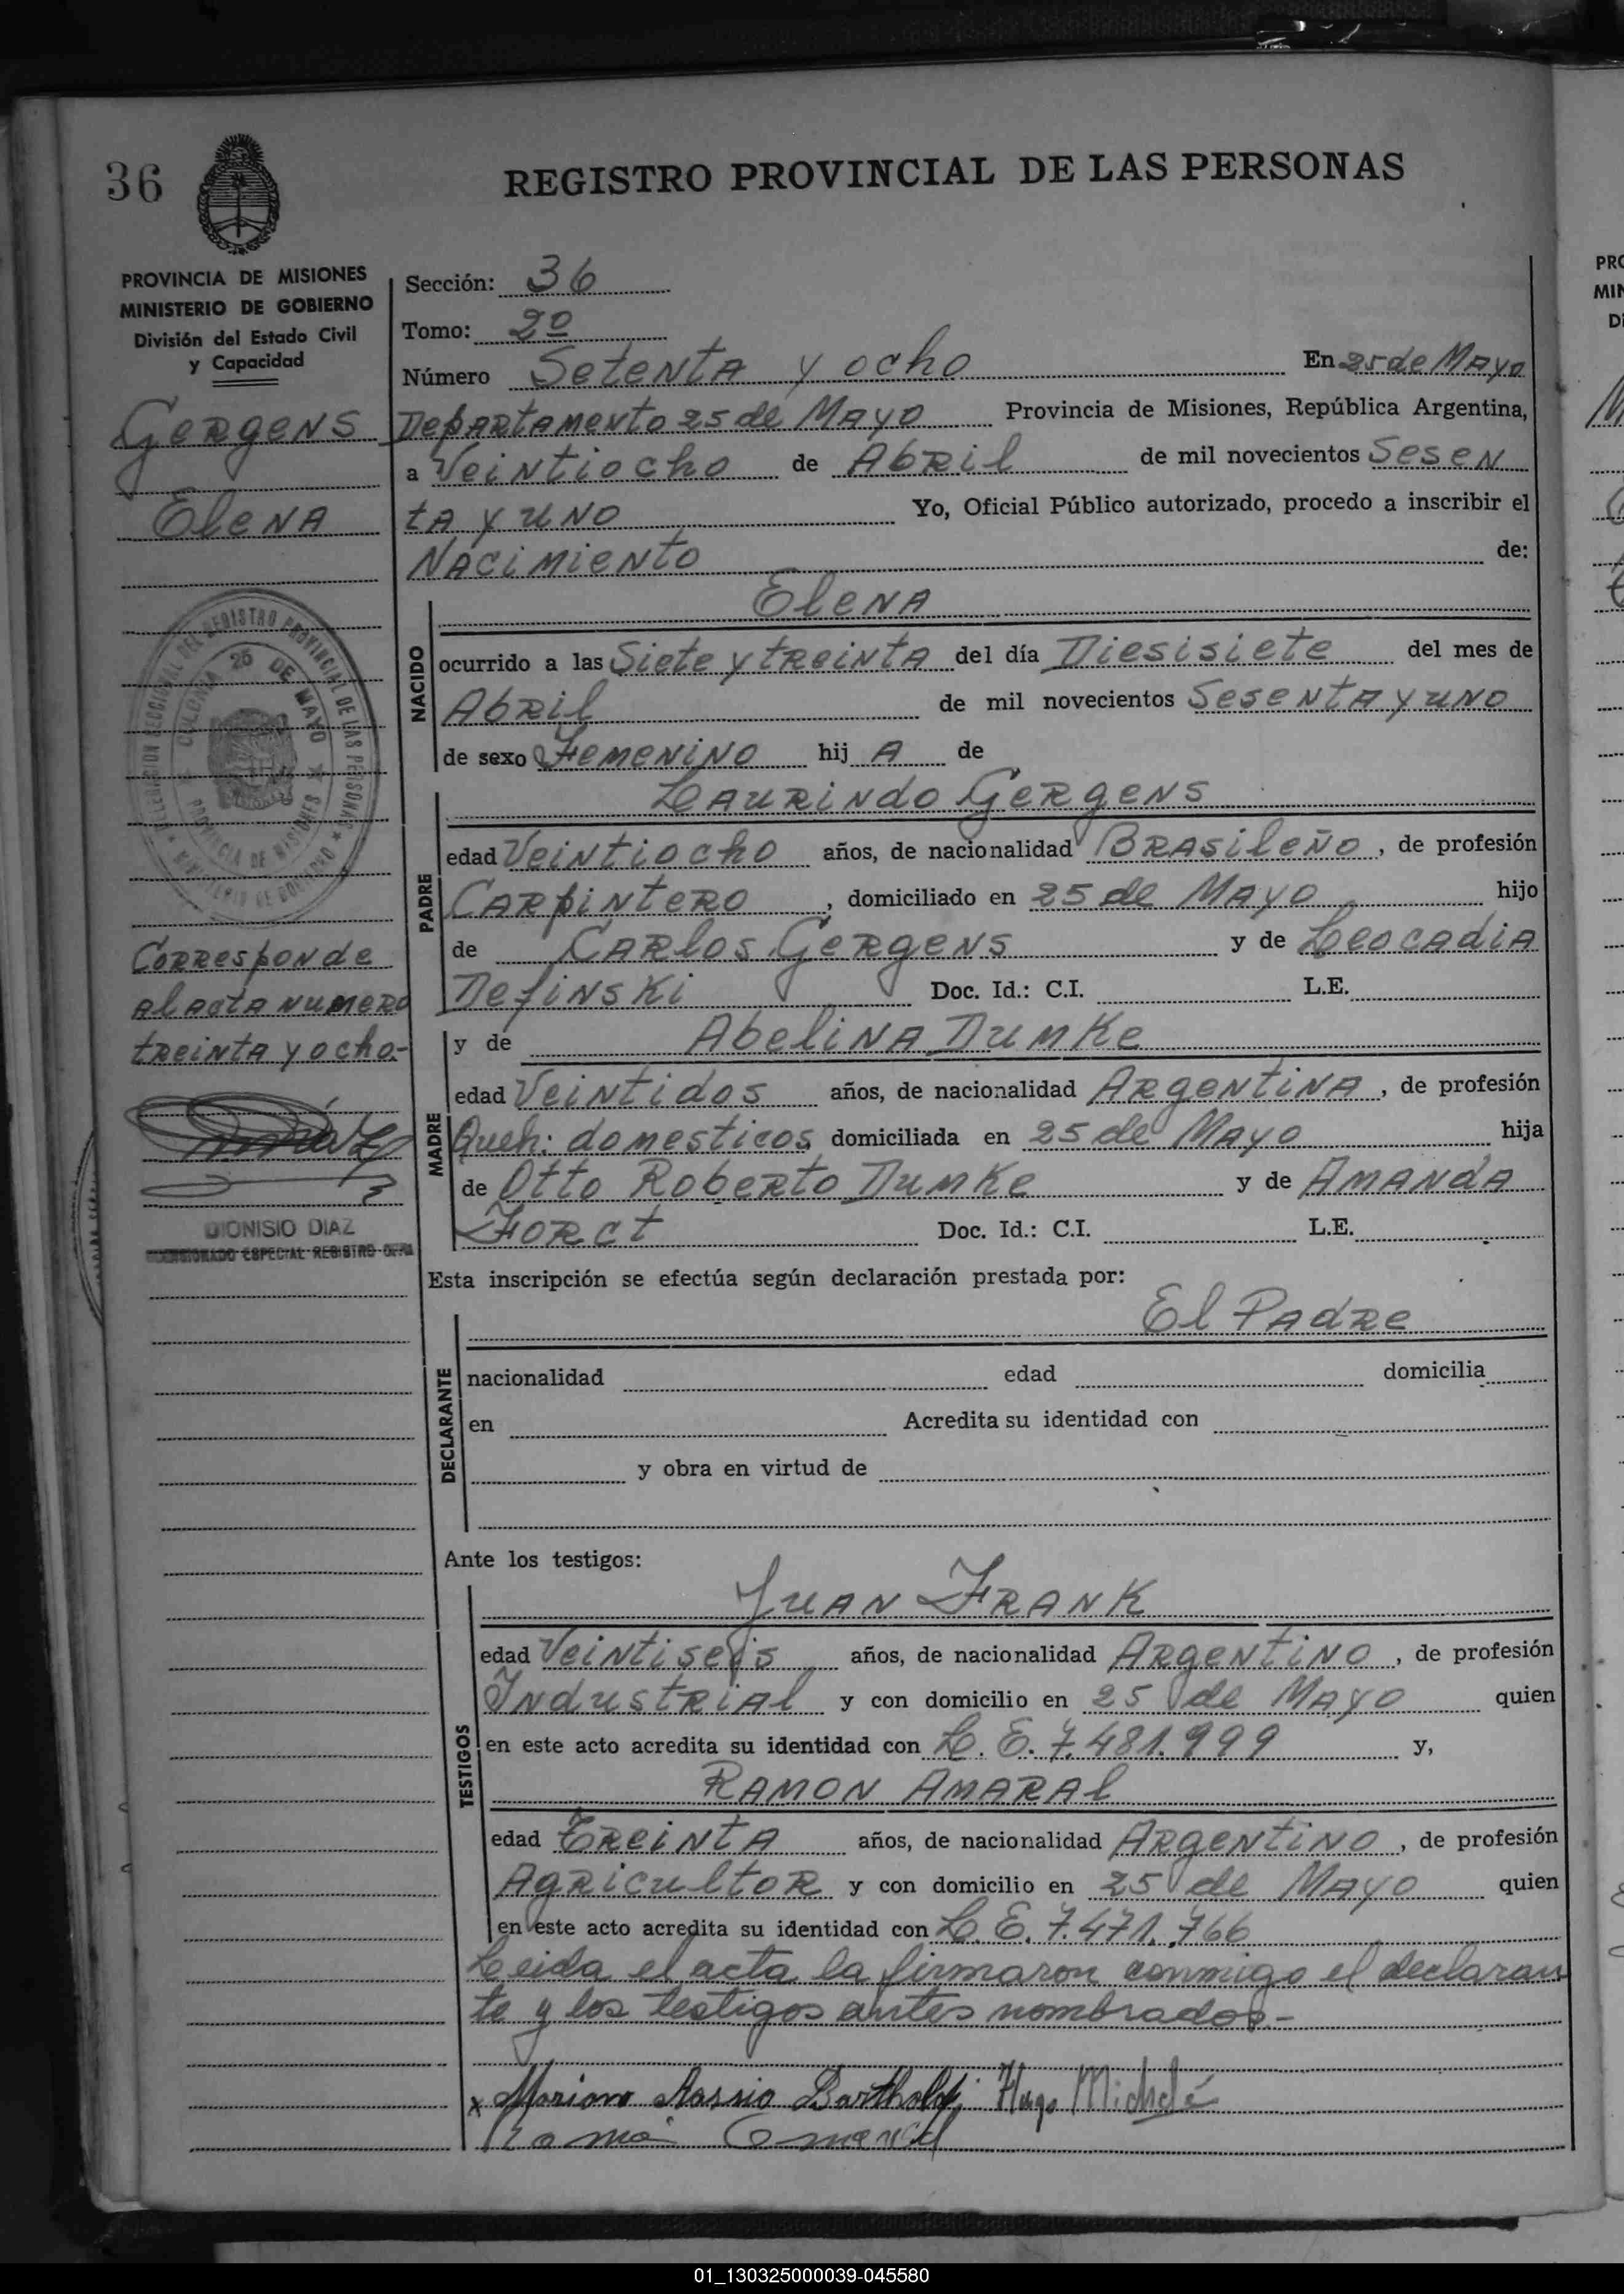 36
REGISTRO PROVINCIAL DE LAS PERSONAS
PROVINCIA DE MISIONES
MINISTERIO DE GOBIERNO
División del Estado Civil
y Capacidad
Gergens
Elena
DELEGACION SECCIONAL DEL REGISTRO PROVINCIAL DE LAS PERSONAS
COLONIA 25 DE MAYO
PROVINCIA DE MISIONES
MINISTERIO DE GOBIERNO
Corresponde
al acta numero
treinta y ocho.-
DIONISIO DIAZ
ESPECIAL REGISTRO
Sección: 36
Tomo: 2º
Número Setenta y ocho En 25 de Mayo
Departamento 25 de Mayo Provincia de Misiones, República Argentina,
a Veintiocho de Abril de mil novecientos Sesen
ta y uno Yo, Oficial Público autorizado, procedo a inscribir el
Nacimiento de:
NACIDO
Elena
ocurrido a las Siete y treinta del día Diesisiete del mes de
Abril de mil novecientos Sesenta y uno
de sexo Femenino hij A de
PADRE
Laurindo Gergens
edad Veintiocho años, de nacionalidad Brasileño, de profesión
Carpintero, domiciliado en 25 de Mayo hijo
de Carlos Gergens y de Leocadia
Definski Doc. Id.: C.I. L.E.
MADRE
y de Abelina Dumke
edad Veintidos años, de nacionalidad Argentina, de profesión
Queh: domesticos domiciliada en 25 de Mayo hija
de Otto Roberto Dumke y de Amanda
Forct Doc. Id.: C.I. L.E.
Esta inscripción se efectúa según declaración prestada por:
DECLARANTE
El Padre
nacionalidad edad domicilia
en Acredita su identidad con
y obra en virtud de
Ante los testigos:
TESTIGOS
Juan Frank
edad Veintiseis años, de nacionalidad Argentino, de profesión
Industrial y con domicilio en 25 de Mayo quien
en este acto acredita su identidad con L. E. 7.481.999 y,
Ramon Amaral
edad Treinta años, de nacionalidad Argentino, de profesión
Agricultor y con domicilio en 25 de Mayo quien
en este acto acredita su identidad con L. E. 7.471.766
Leida el acta la firmaron conmigo el declaran
te y los testigos antes nombrados.-
x Bartholdy Hugo
PRO
MIN
D
01_130325000039-045580